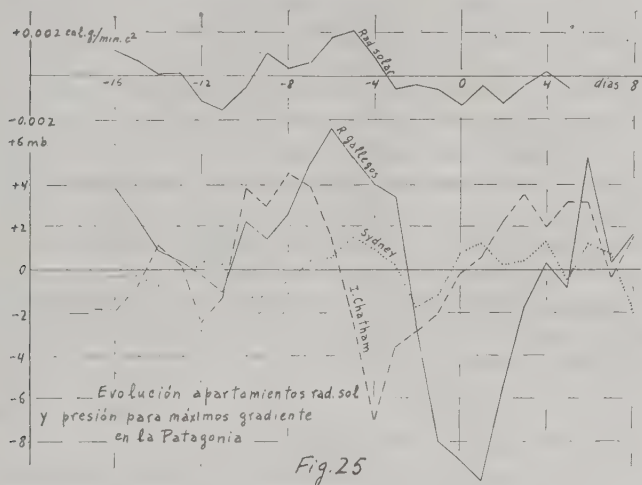 +0.002 cal.g/min.c²
Rad solar
-16
-12
-8
-4
0
4
dias 8
-0.002
+6 mb
R.gallegos
+4
+2
Sydney
0
I.Chatham
-2
-4
-6
-8
Evolución apartamientos rad.sol
y presión para máximos gradiente
en la Patagonia
Fig.25